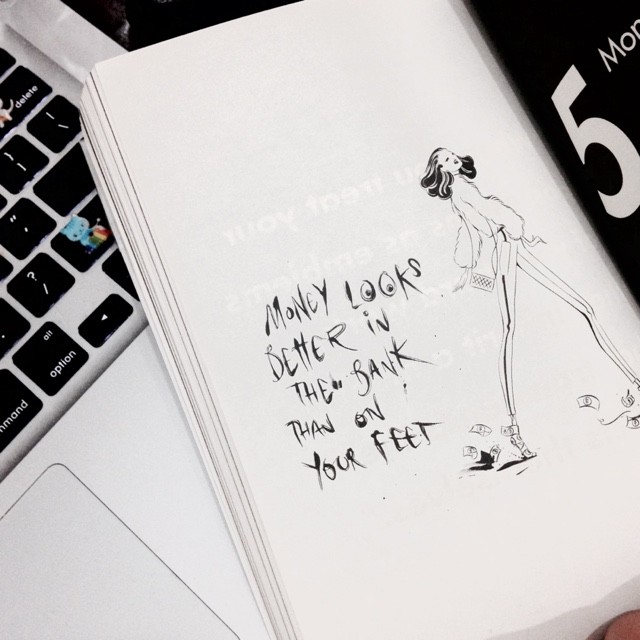 MONEY LOOKS
BETTER IN
THE BANK
THAN ON
YOUR FEET
5
Mon
delete
alt
option
mmand